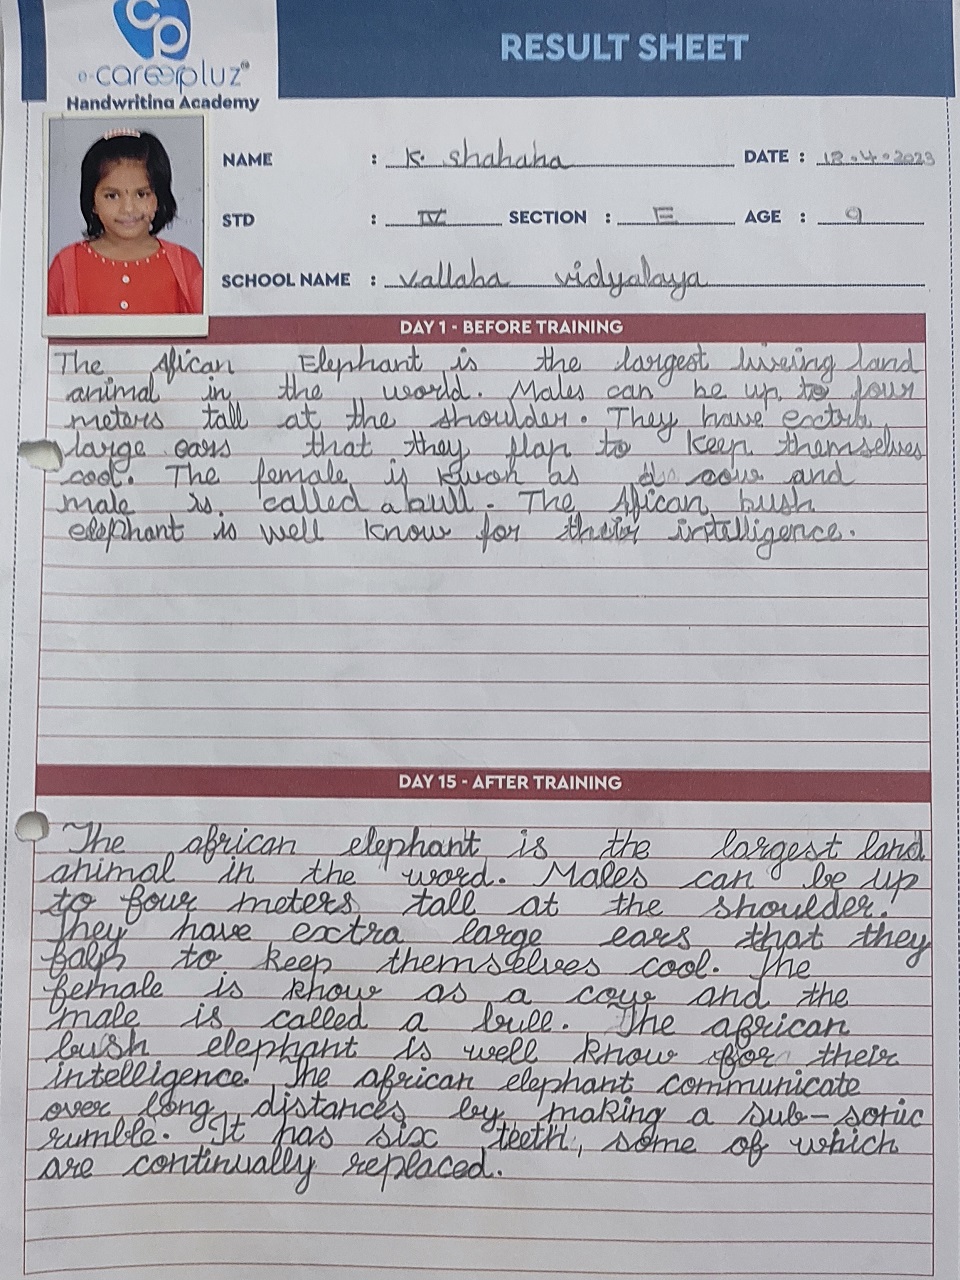 RESULT SHEET
e-careerpluz
Handwriting Academy
NAME : K. Shahana DATE : 12.4.2023
STD : IV SECTION : E AGE : 9
SCHOOL NAME : Vallaba vidyalaya
DAY 1 - BEFORE TRAINING
The African Elephant is the largest liveing land
animal in the world. Males can be up to four
meters tall at the shoulder. They have extra
large ears that they flap to keep themselves
cool. The female is kwon as cow and
male is. called a bull. The African bush
elephant is well know for their intelligence.
DAY 15 - AFTER TRAINING
The african elephant is the largest land
animal in the word. Males can be up
to four meters tall at the shoulder.
They have extra large ears that they
falp to keep themselves cool. The
female is know as a cow and the
male is called a bull. The african
bush elephant is well know for their
intelligence. The african elephant communicate
over long distances by making a sub-sonic
rumble. It has six teeth, some of which
are continually replaced.